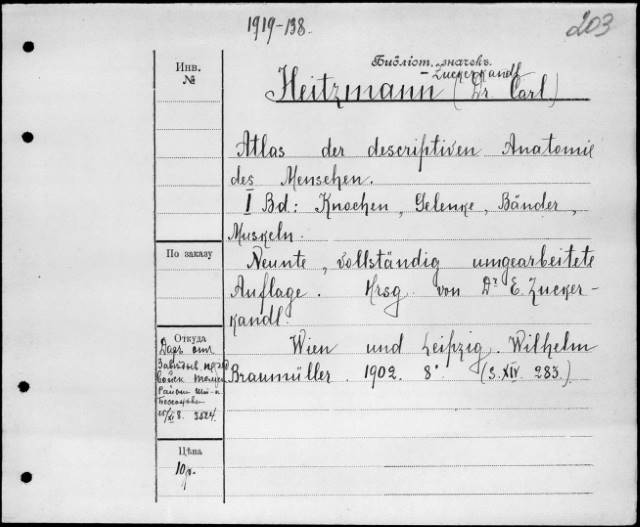 1919-138.
203
Библіот. значекъ.
Инв.
№
-Zuckerkandl
Heitzmann (Dr. Carl)
Atlas der descriptiven Anatomie
des Menschen.
I Bd: Knochen, Gelenke, Bänder,
Muskeln.
По заказу
Neunte, vollständig umgearbeitete
Auflage. Hrsg. von Dr E. Zucker-
kandl.
Откуда
Wien und Leipzig. Wilhelm
Braumüller. 1902. 8°. (S. XIV. 283.)
Даръ отъ
8. 2524.
Цѣна
10р.